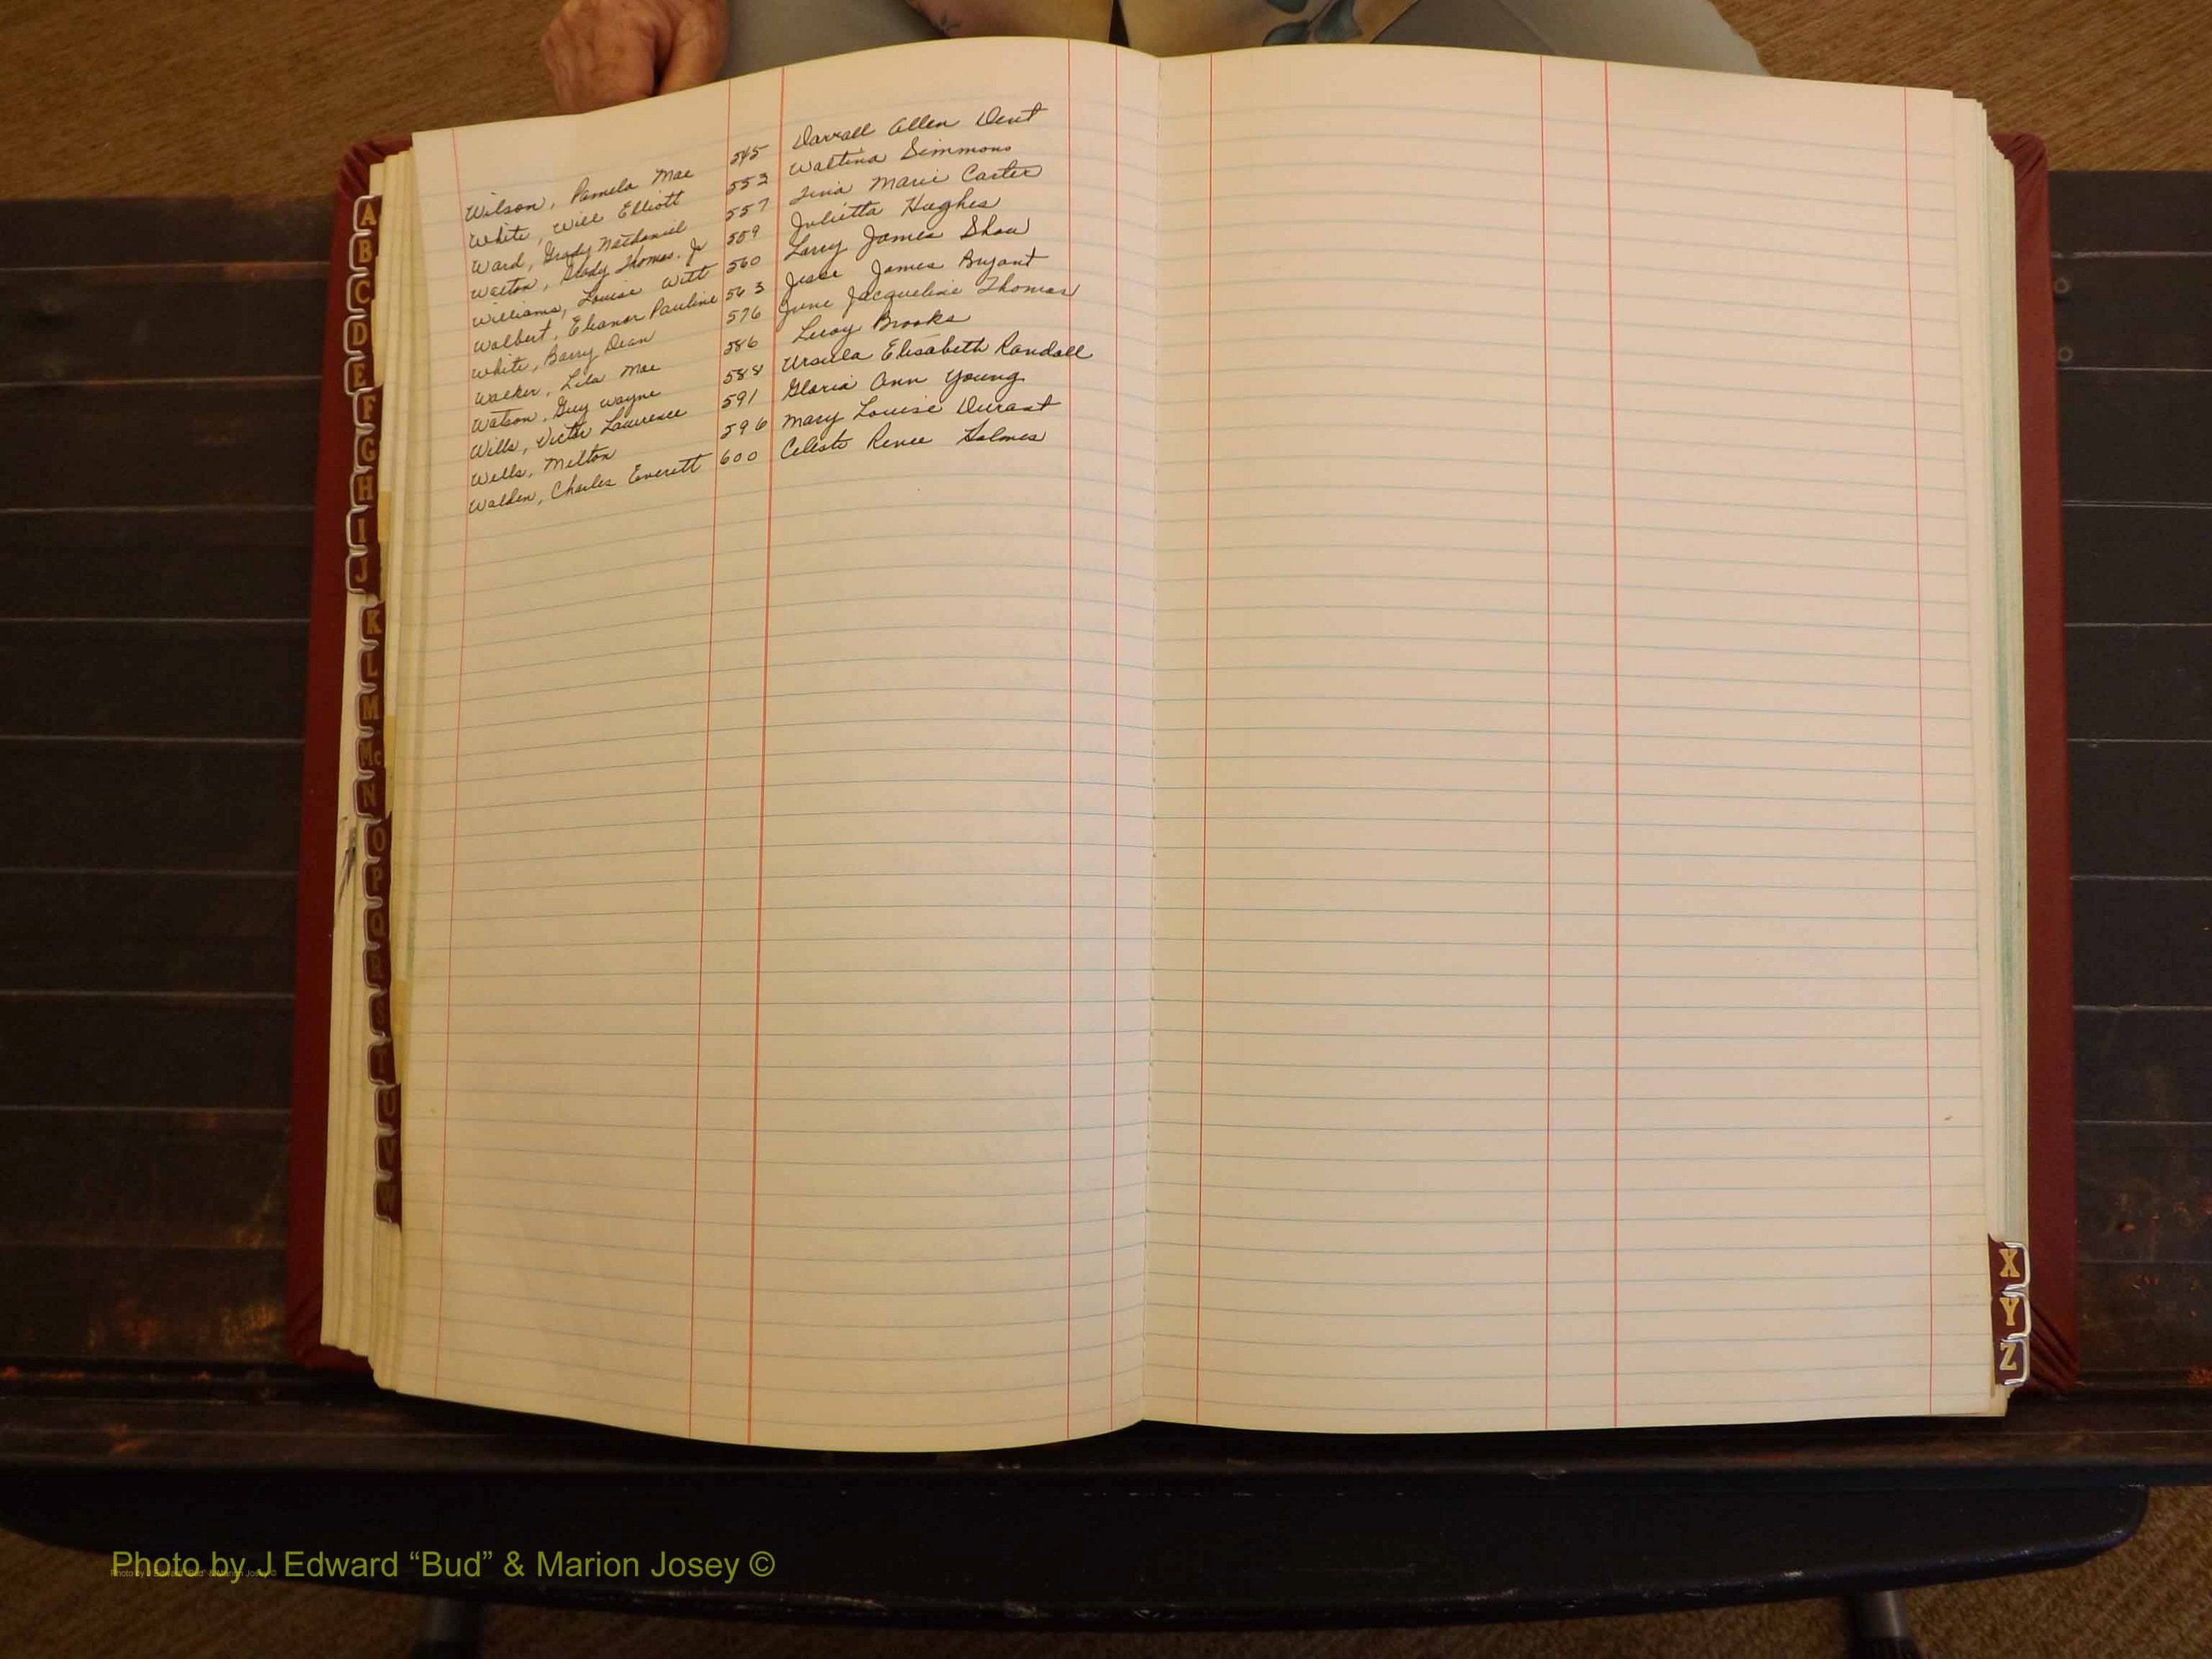 Wilson, Pamela Mae 545 Darrall Allen Dent
White, Will Elliott 553 Waltina Simmons
Ward, Grady Nathaniel 557 Tina Marie Carter
Walton, Grady Thomas. Jr 559 Julietta Hughes
Williams, Louise Witt 560 Larry James Shaw
Walbert, Eleanor Pauline 563 Jesse James Bryant
White, Barry Dean 576 June Jacqueline Thomas
Walker, Lila Mae 586 Leroy Brooks
Watson, Guy Wayne 588 Ursula Elisabeth Randall
Wills, Victor Lawrence 591 Gloria Ann Young
Wells, Milton 596 Mary Louise Durant
Walden, Charles Everett 600 Celeste Renee Holmes
A
B
C
D
E
F
G
H
I
J
K
L
M
Mc
N
O
P
Q
R
S
T
U
V
W
X
Y
Z
Photo by J Edward “Bud” & Marion Josey ©
Photo by J Edward “Bud” & Marion Josey ©